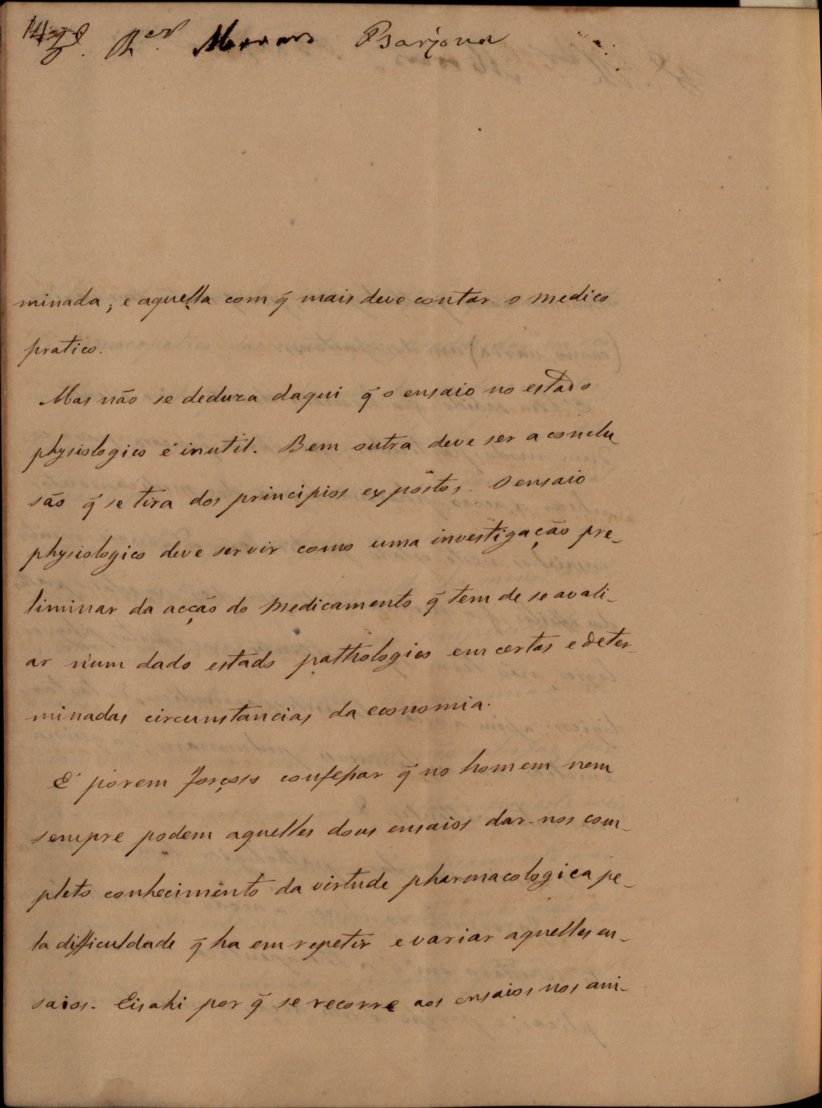 14
Moraes Barjona
minada; e aquella com q̃ mais deve contar o medico
pratico.
Mas não se deduza daqui q̃ o ensaio no estado
physiologico é inutil. Bem outra deve ser a conclu
são q̃ se tira dos principios expóstos. O ensaio
physiologico deve servir como uma investigação pre-
liminar da acção do medicamento q̃ tem de se avali-
ar n'um dado estado pathologico em certas e deter-
minadas circunstancias da economia.
É porem forçoso confessar q̃ no homem nem
sempre podem aquelles dous ensaios dar-nos com-
pleto conhecimento da virtude pharmacologica pe-
la difficuldade q̃ ha em repetir e variar aquelles en-
saios. Eis ahi por q̃ se recorre aos ensaios nos ani-